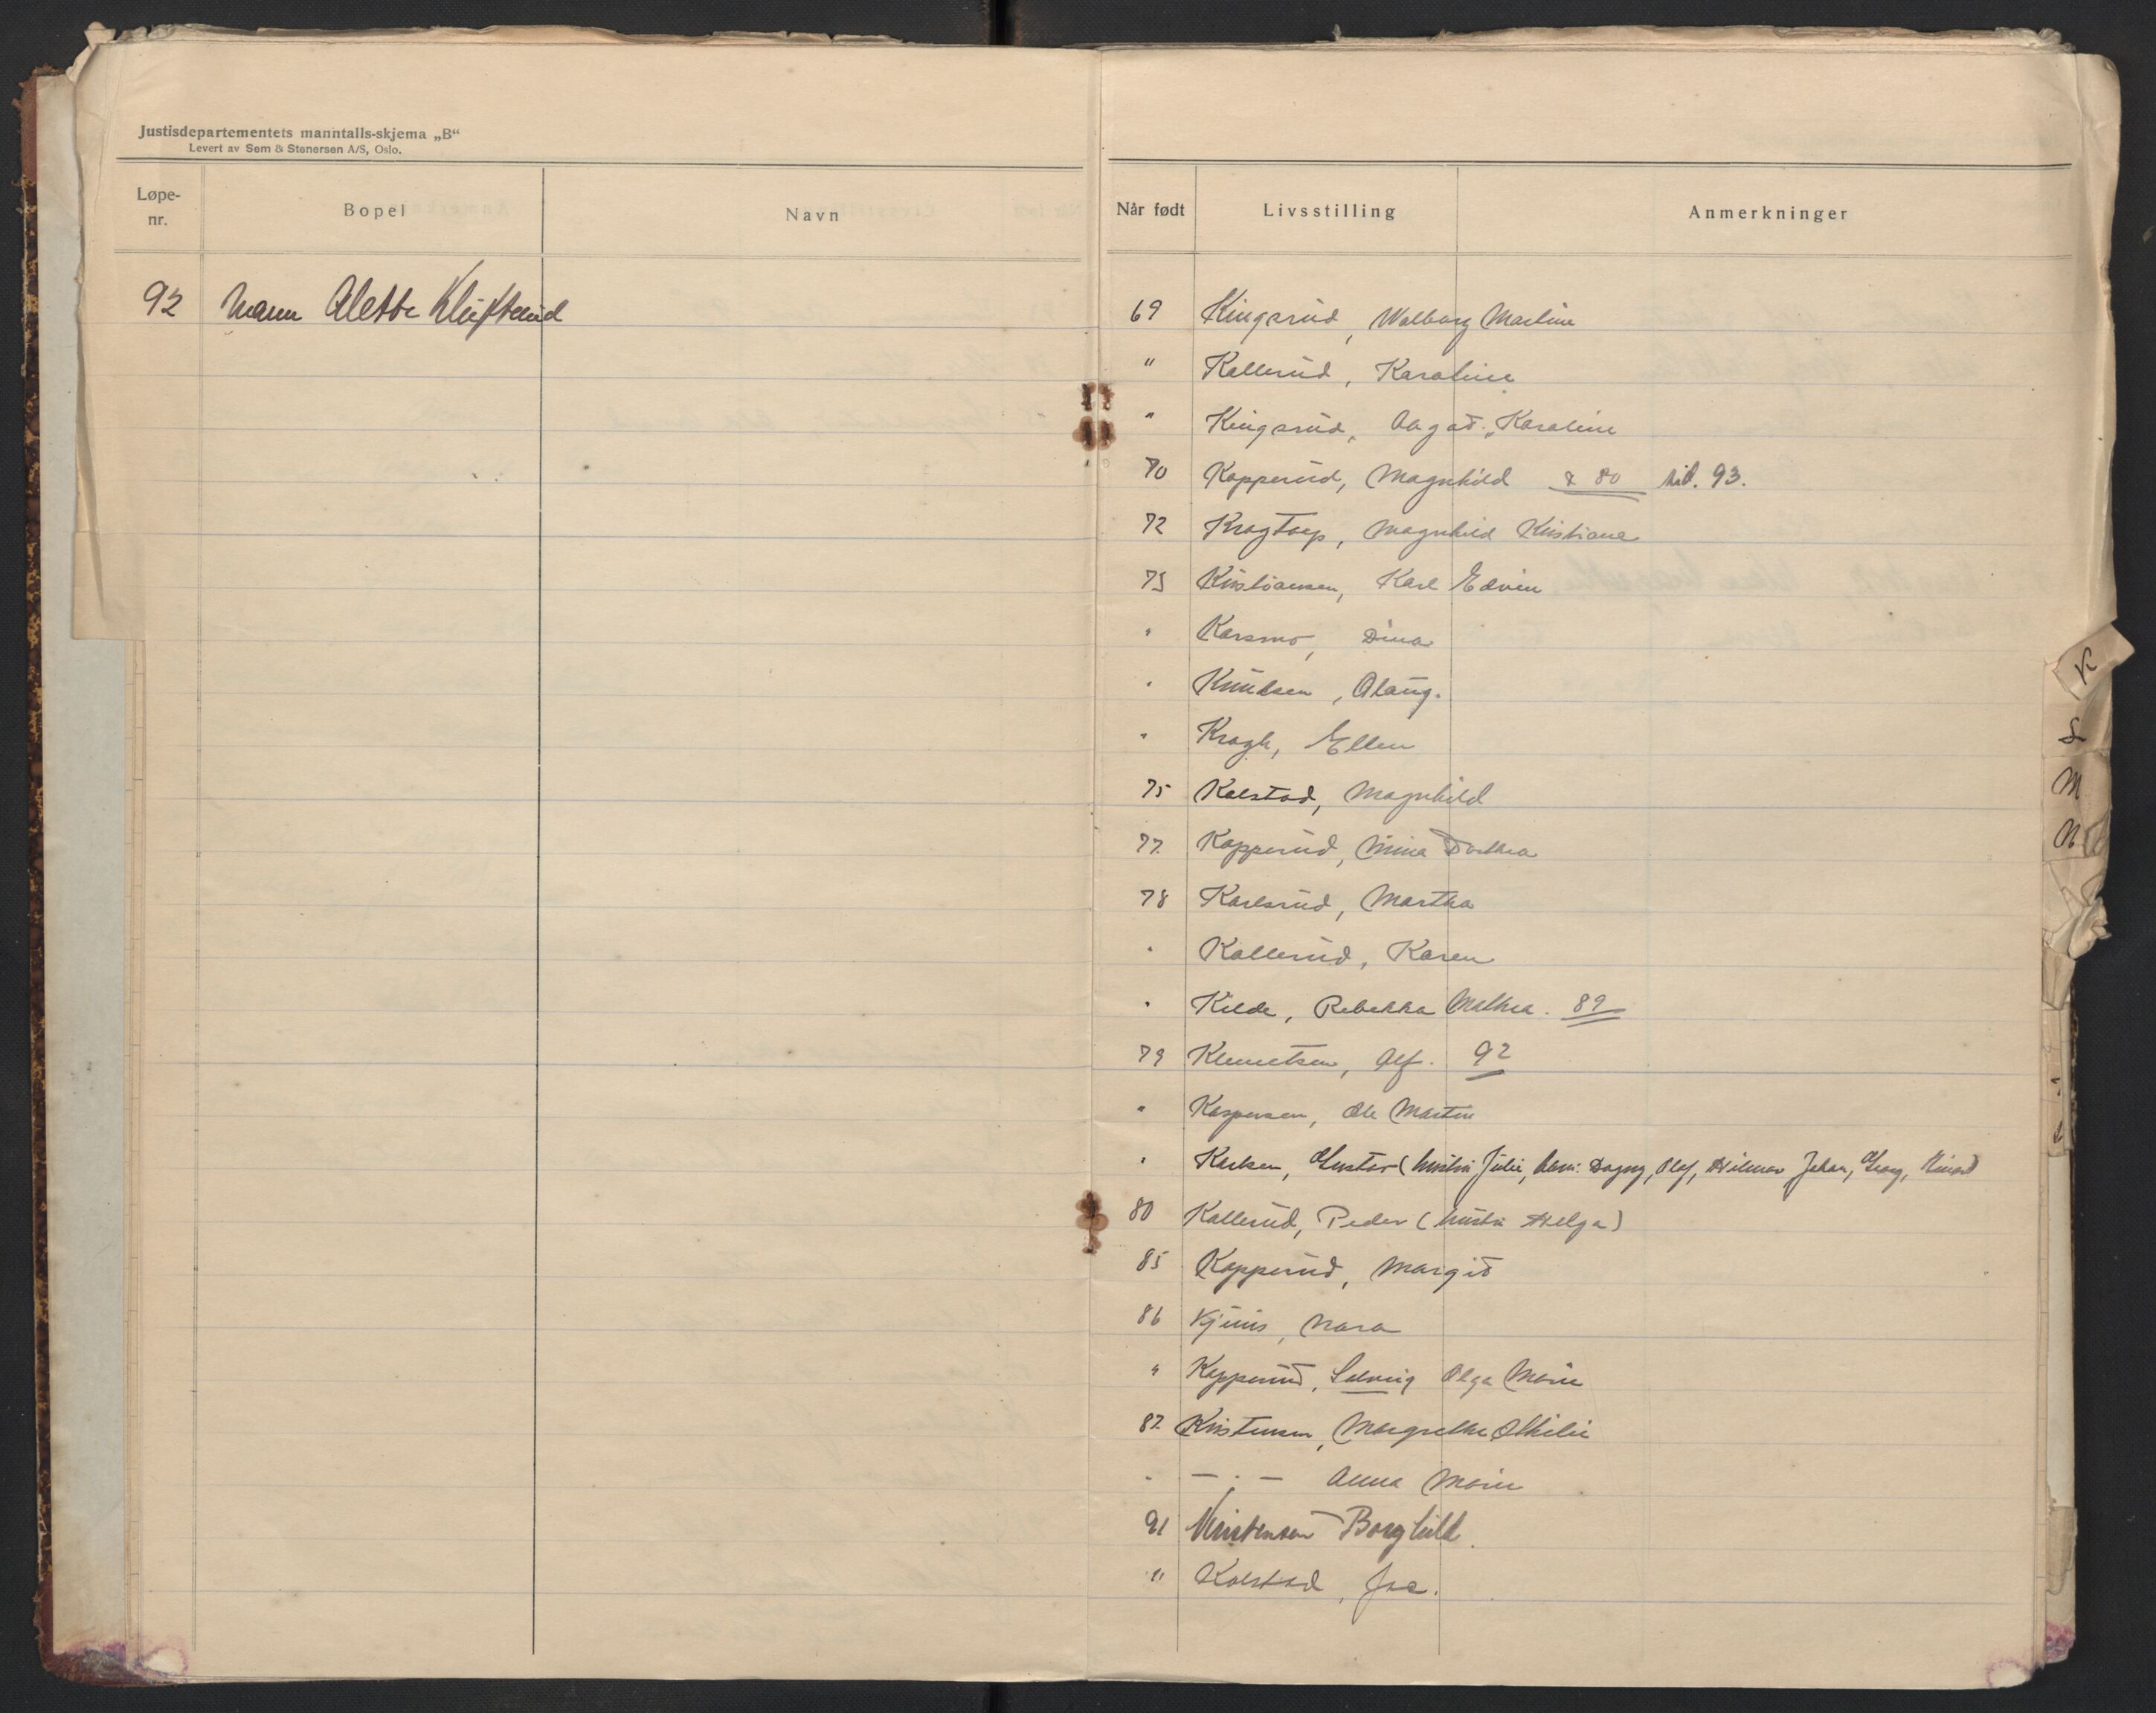 Justisdepartementets manntalls-skjema „B"
Levert av Sem & Stenersen A/S, Oslo.
Løpe-
nr.
Bopel
Navn
Når født
Livsstilling
Anmerkninger
92 Alette
69 Kingsrud, Walborg Marline
" Kallerud, Karoline
" Kingsrud, Karoline
70 Kopperud, Magnhild & 80 sid. 93.
72 Kragtorp, Magnhild Kristiane
75 Kristiansen, Karl Edvin
" Karsmo, Dina
" Knudsen, Aslaug.
" Kragh, Ellen
75 Kolstad, Magnhild
77. Kopperud, Mina Dorthea
78 Karlsrud, Martha
" Kallerud, Karen
" Kilde, Rebekka Mathea. 89
79 Klemetsen, Alf. 92
" Kaspersen, Ole Martin
" Karlsen, Gustav (hustru Julie, barn: Dagny, Olaf, Hilmar Johan, Georg,
80 Kallerud, Peder (hustru Helga)
85 Kopperud, Margit
86 Kjuus, Nara
" Kopperud, Solveig Olga Marie
87. Kristensen, Margrethe Othilie
" — " — Anna Marie
91 Kristensen Borghild.
" Kolstad, Jac.
K
L
M
N